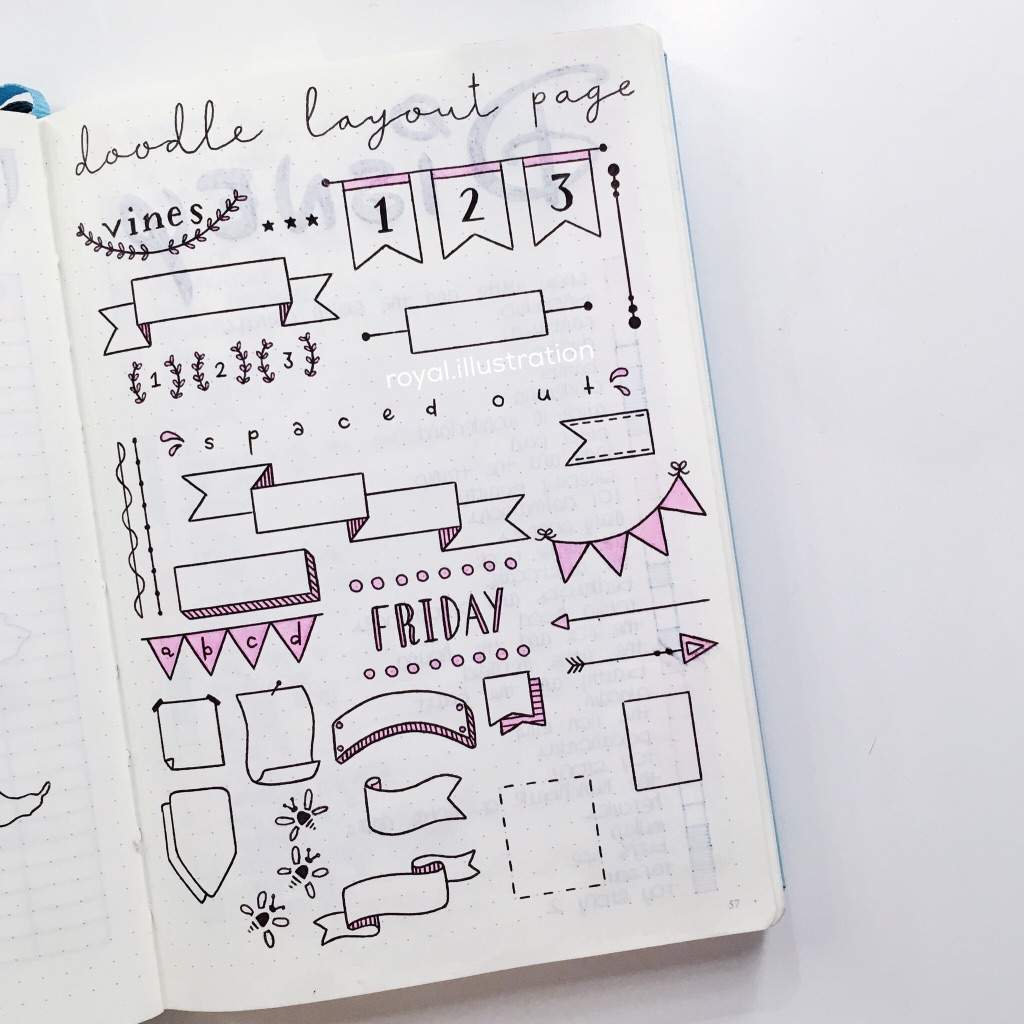 doodle layout page
vines
1 2 3
1 2 3
royal.illustration
spaced out
FRIDAY
a b c d
57